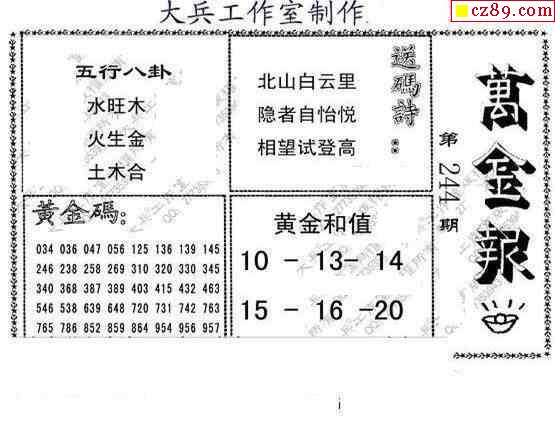 大兵工作室制作
cz89.com
五行八卦
水旺木
火生金
土木合
送碼詩:
北山白云里
隐者自怡悦
相望试登高
萬金報
第244期
黃金碼:
034 036 047 056 125 136 139 145
246 238 258 269 310 320 330 345
340 368 387 389 403 415 432 463
546 538 639 648 720 731 742 763
765 786 852 859 864 954 956 957
黄金和值
10 - 13- 14
15 - 16 -20
i